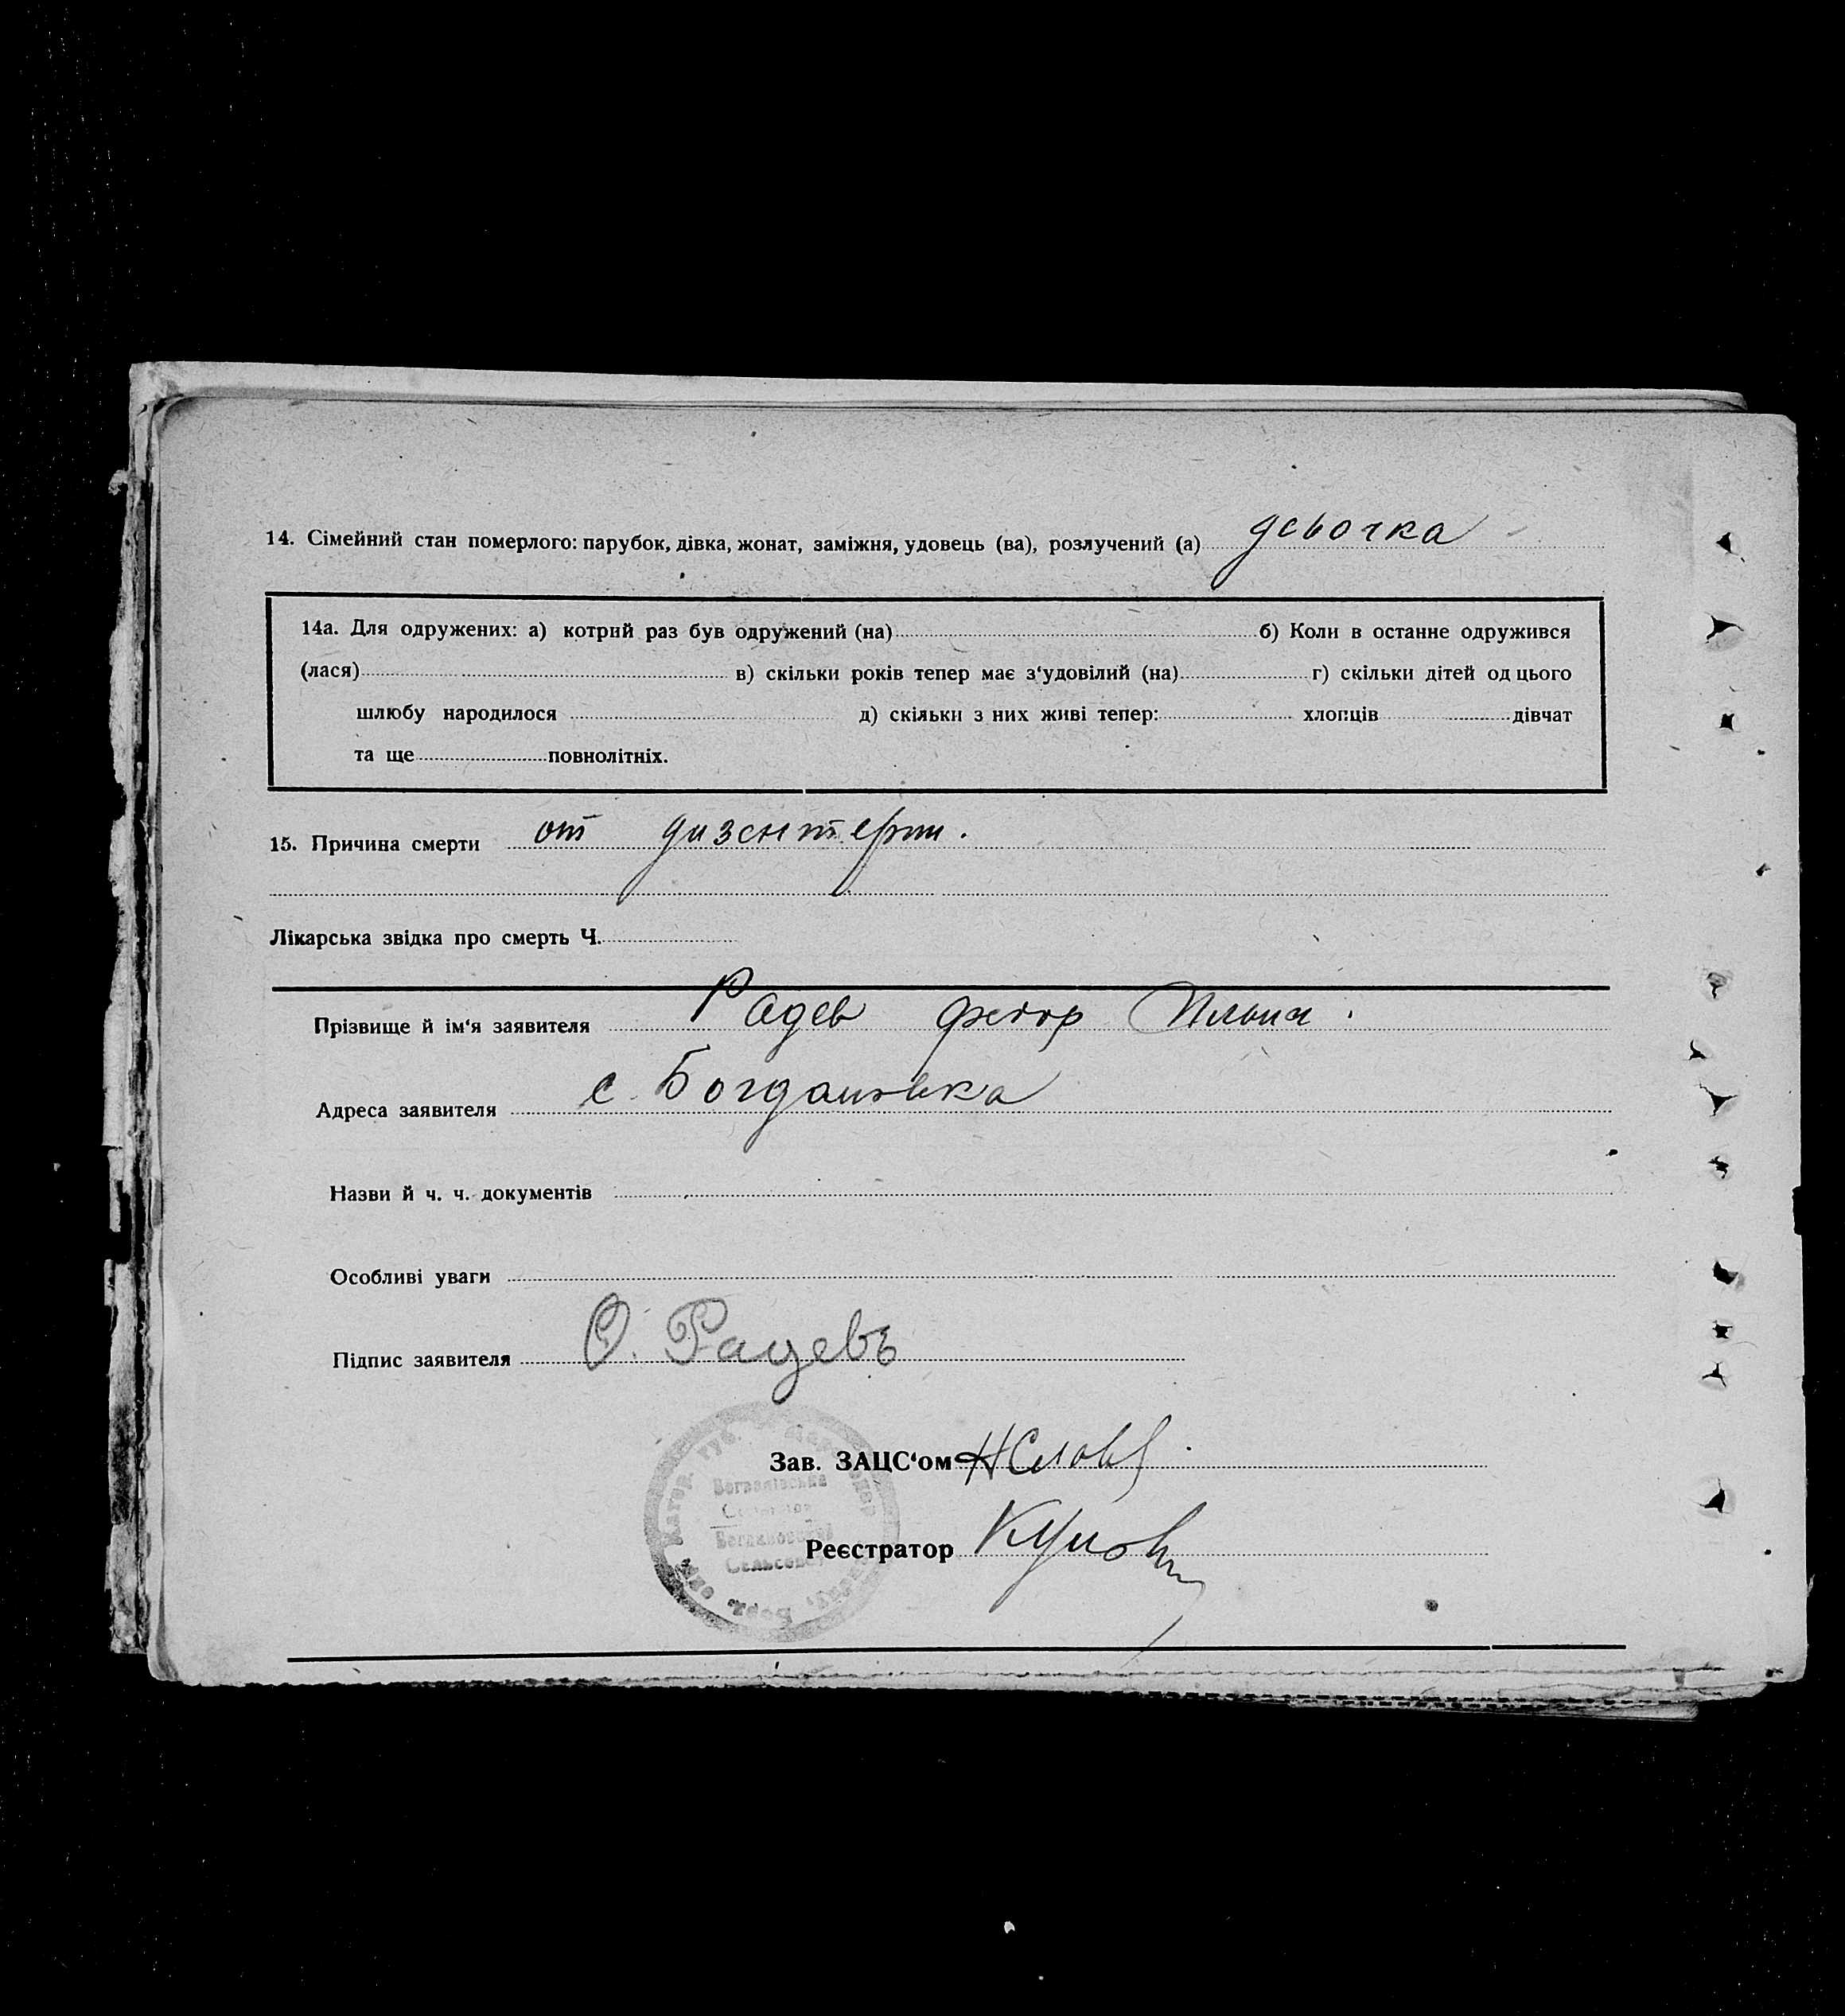 14. Сімейний стан померлого: парубок, дівка, жонат, заміжня, удовець (ва), розлучений (а) девочка
14а. Для одружених: а) котрий раз був одружений (на) б) Коли в останне одружився
(лася) в) скільки років тепер має з‘удовілий (на) г) скільки дітей од цього
шлюбу народилося д) скільки з них живі тепер: хлопців дівчат
та ще повнолітніх.
15. Причина смерти от дизентерии.
Лікарська звідка про смерть Ч.
Прізвище й ім‘я заявителя Радев Федор Ильич
Адреса заявителя с. Богдановка
Назви й ч. ч. документів
Особливі уваги
Підпис заявителя Ѳ. Радевъ
Зав. ЗАЦС‘ом
Реєстратор